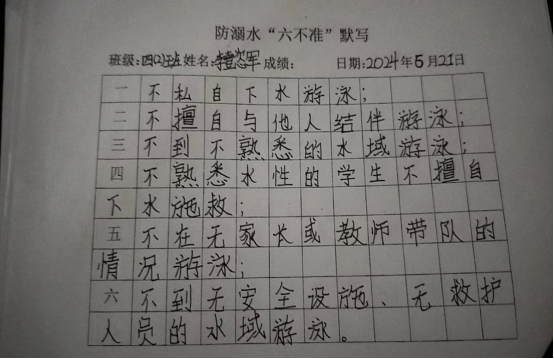 防溺水“六不准”默写
班级:四(2)班 姓名: 成绩: 日期:2024年5月21日
一不私自下水游泳;
二不擅自与他人结伴游泳;
三不到不熟悉的水域游泳;
四不熟悉水性的学生不擅自
下水施救;
五不在无家长或教师带队的
情况游泳;
六不到无安全设施、无救护
人员的水域游泳。